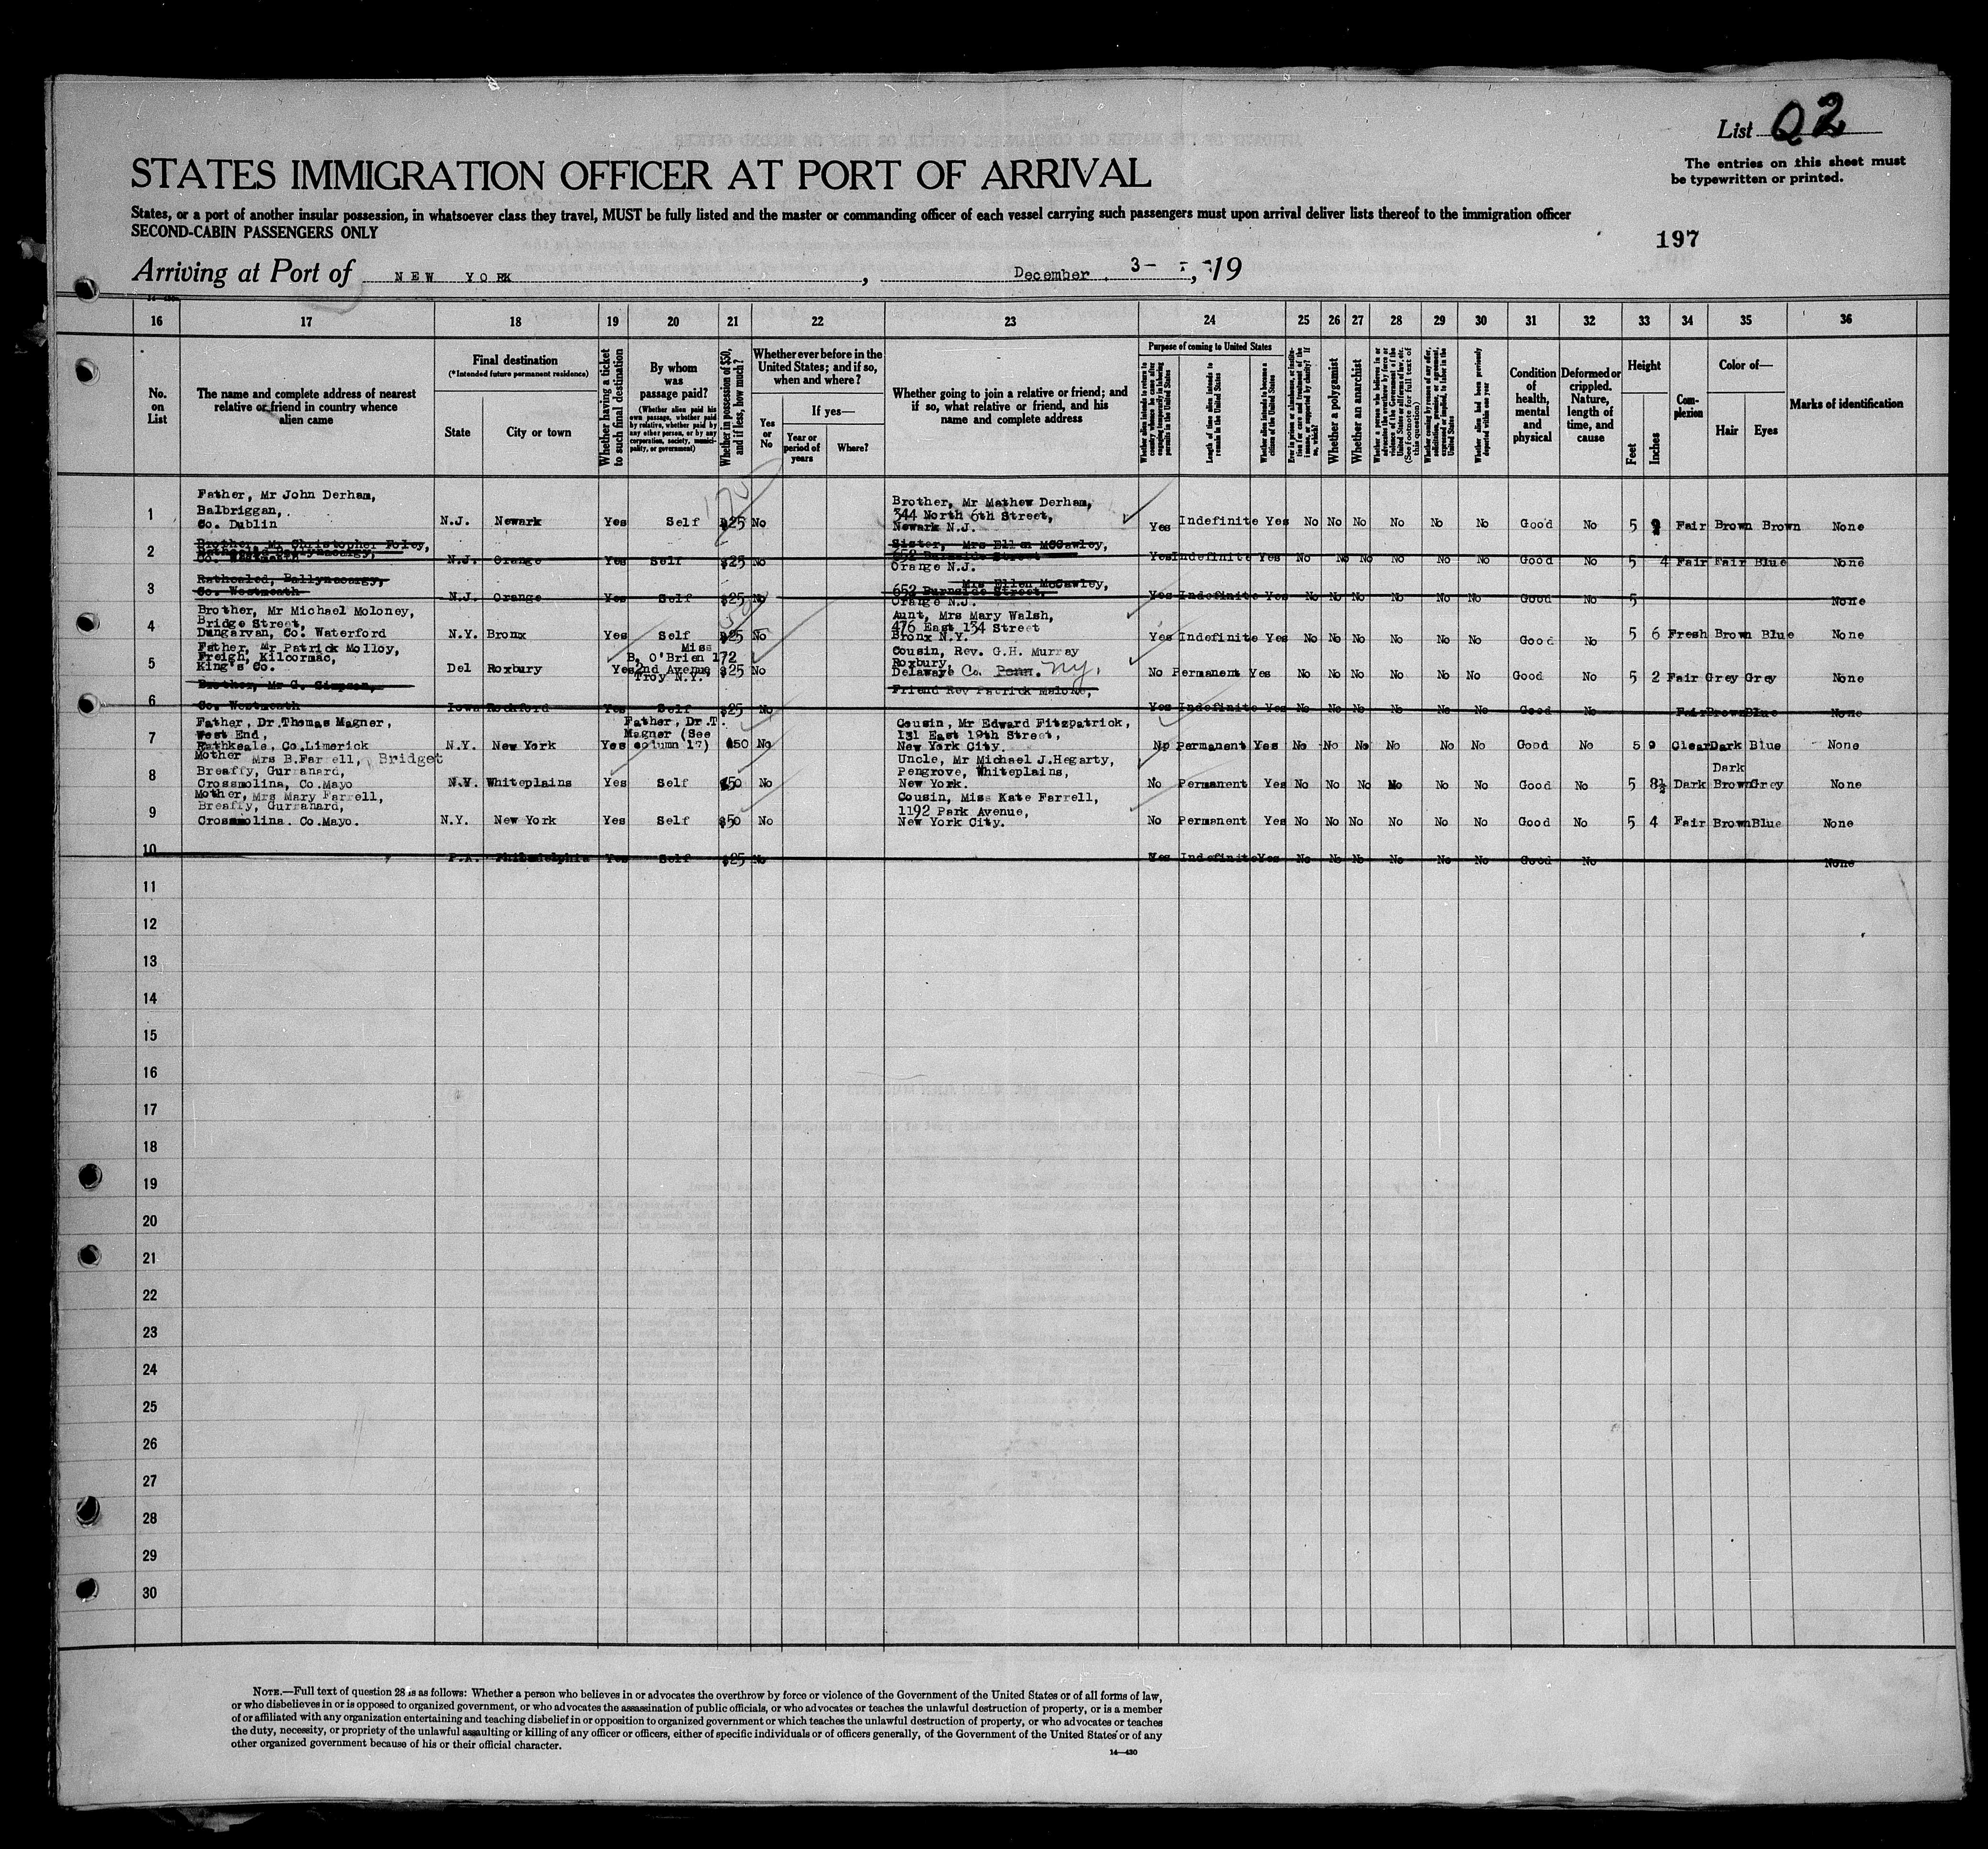 List Q2
The entries on this sheet must
be typewritten or printed.
STATES IMMIGRATION OFFICER AT PORT OF ARRIVAL
States, or a port of another insular possession, in whatsoever class they travel, MUST be fully listed and the master or commanding officer of each vessel carrying such passengers must upon arrival deliver lists thereof to the immigration officer
SECOND-CABIN PASSENGERS ONLY
197
Arriving at Port of NEW YORK, December 3-, 19
16 17 18 19 20 21 22 23 24 25 26 27 28 29 30 31 32 33 34 35 36
No. on List
The name and complete address of nearest
relative or friend in country whence
alien came
Final destination
(*Intended future permanent residence)
State
City or town
Whether having a ticket
to such final destination
By whom
was
passage paid?
(Whether alien paid his
own passage, whether paid
by relative, whether paid by
any other person, or by any
corporation, society, munici-
pality, or government)
Whether in possession of $50,
and if less, how much?
Whether ever before in the
United States; and if so,
when and where?
Yes
or
No
If yes—
Year or
period of
years
Where?
Whether going to join a relative or friend; and
if so, what relative or friend, and his
name and complete address
Purpose of coming to United States
Whether alien intends to return to
country whence he came after
engaging temporarily in laboring
pursuits in the United States
Length of time alien intends to
remain in the United States
Whether alien intends to become a
citizen of the United States
Whether a polygamist
Whether an anarchist
Whether alien had been previously
deported within one year
Condition
of
health,
mental
and
physical
Deformed or
crippled.
Nature,
length of
time, and
cause
Height
Feet
Inches
Com-
plexion
Color of—
Hair
Eyes
Marks of identification
1
Father, Mr John Derham,
Balbriggan,
Co. Dublin
N.J. Newark Yes Self $25 No
Brother, Mr Mathew Derham,
344 North 6th Street,
Newark N.J.
Yes Indefinite Yes No No No No No No Good No 5 9 Fair Brown Brown None
2
Brother, Mr Christopher Foley,
Rathcaled Ballynacargy,
Co. Westmeath
N.J. Orange Yes Self $25 No
Sister, Mrs Ellen McCawley,
652 Burnside Street
Orange N.J.
Yes Indefinite Yes No No No No No No Good No 5 4 Fair Fair Blue None
3
Rathcaled, Ballynacargy,
Co. Westmeath
N.J. Orange Yes Self $25 No
Mrs Ellen McCawley,
652 Burnside Street,
Orange N.J.
Yes Indefinite Yes No No No No No No Good No 5 None
4
Brother, Mr Michael Moloney,
Bridge Street,
Dungarvan, Co. Waterford
N.Y. Bronx Yes Self $25 No
Aunt, Mrs Mary Walsh,
476 East 134 Street
Bronx N.Y.
Yes Indefinite Yes No No No No No No Good No 5 6 Fresh Brown Blue None
5
Father, Mr Patrick Molloy,
Freigh, Kilcormac,
King's Co.
Del Roxbury Yes
Miss
B. O'Brien 172
2nd Avenue,
Troy N.Y.
$25 No
Cousin, Rev. G.H. Murray
Roxbury,
Delaware Co. Penn. N.Y.
No Permanent Yes No No No No No No Good No 5 2 Fair Grey Grey None
6
Brother, Mr G. Simpson,
Co. Westmeath
Iowa Rockford Yes Self $25 No
Friend Rev Patrick Malone,
Yes Indefinite Yes No No No No No No Good No Fair Brown Blue None
7
Father, Dr. Thomas Magner,
West End,
Rathkeale, Co. Limerick
N.Y. New York Yes
Father, Dr. T.
Magner (See
column 17)
$50 No
Cousin, Mr Edward Fitzpatrick,
131 East 19th Street,
New York City.
No Permanent Yes No No No No No No Good No 5 9 Clear Dark Blue None
8
Mother Mrs B. Farrell, Bridget
Breaffy, Gurranard,
Crossmolina, Co. Mayo
N.Y. Whiteplains Yes Self $50 No
Uncle, Mr Michael J. Hegarty,
Pengrove, Whiteplains,
New York.
No Permanent Yes No No No No No No Good No 5 8½ Dark Dark Brown Grey None
9
Mother, Mrs Mary Farrell,
Breaffy, Gurranard,
Crossmolina. Co. Mayo.
N.Y. New York Yes Self $50 No
Cousin, Miss Kate Farrell,
1192 Park Avenue,
New York City.
No Permanent Yes No No No No No No Good No 5 4 Fair Brown Blue None
10
P.A. Philadelphia Yes Self $25 No
Yes Indefinite Yes No No No No No No Good No None
11
12
13
14
15
16
17
18
19
20
21
22
23
24
25
26
27
28
29
30
NOTE.—Full text of question 28 is as follows: Whether a person who believes in or advocates the overthrow by force or violence of the Government of the United States or of all forms of law,
or who disbelieves in or is opposed to organized government, or who advocates the assassination of public officials, or who advocates or teaches the unlawful destruction of property, or is a member
of or affiliated with any organization entertaining and teaching disbelief in or opposition to organized government or which teaches the unlawful destruction of property, or who advocates or teaches
the duty, necessity, or propriety of the unlawful assaulting or killing of any officer or officers, either of specific individuals or of officers generally, of the Government of the United States or of any
other organized government because of his or their official character.
14—430